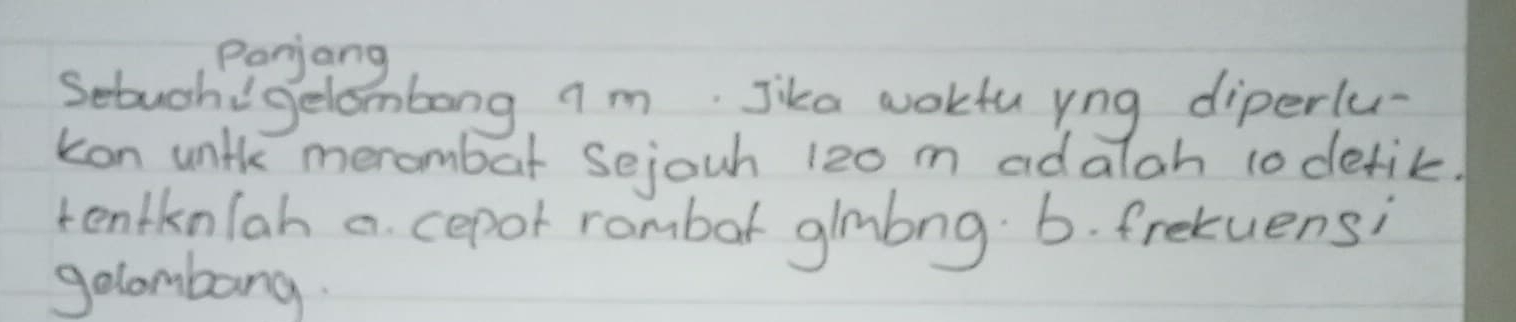 Panjang
Sebuah gelombang 9 m. Jika waktu yng diperlu-
kan untk merambat sejauh 120 m adalah 10 detik.
tentknlah a. cepat rambat glmbng. b. frekuensi
gelombang.